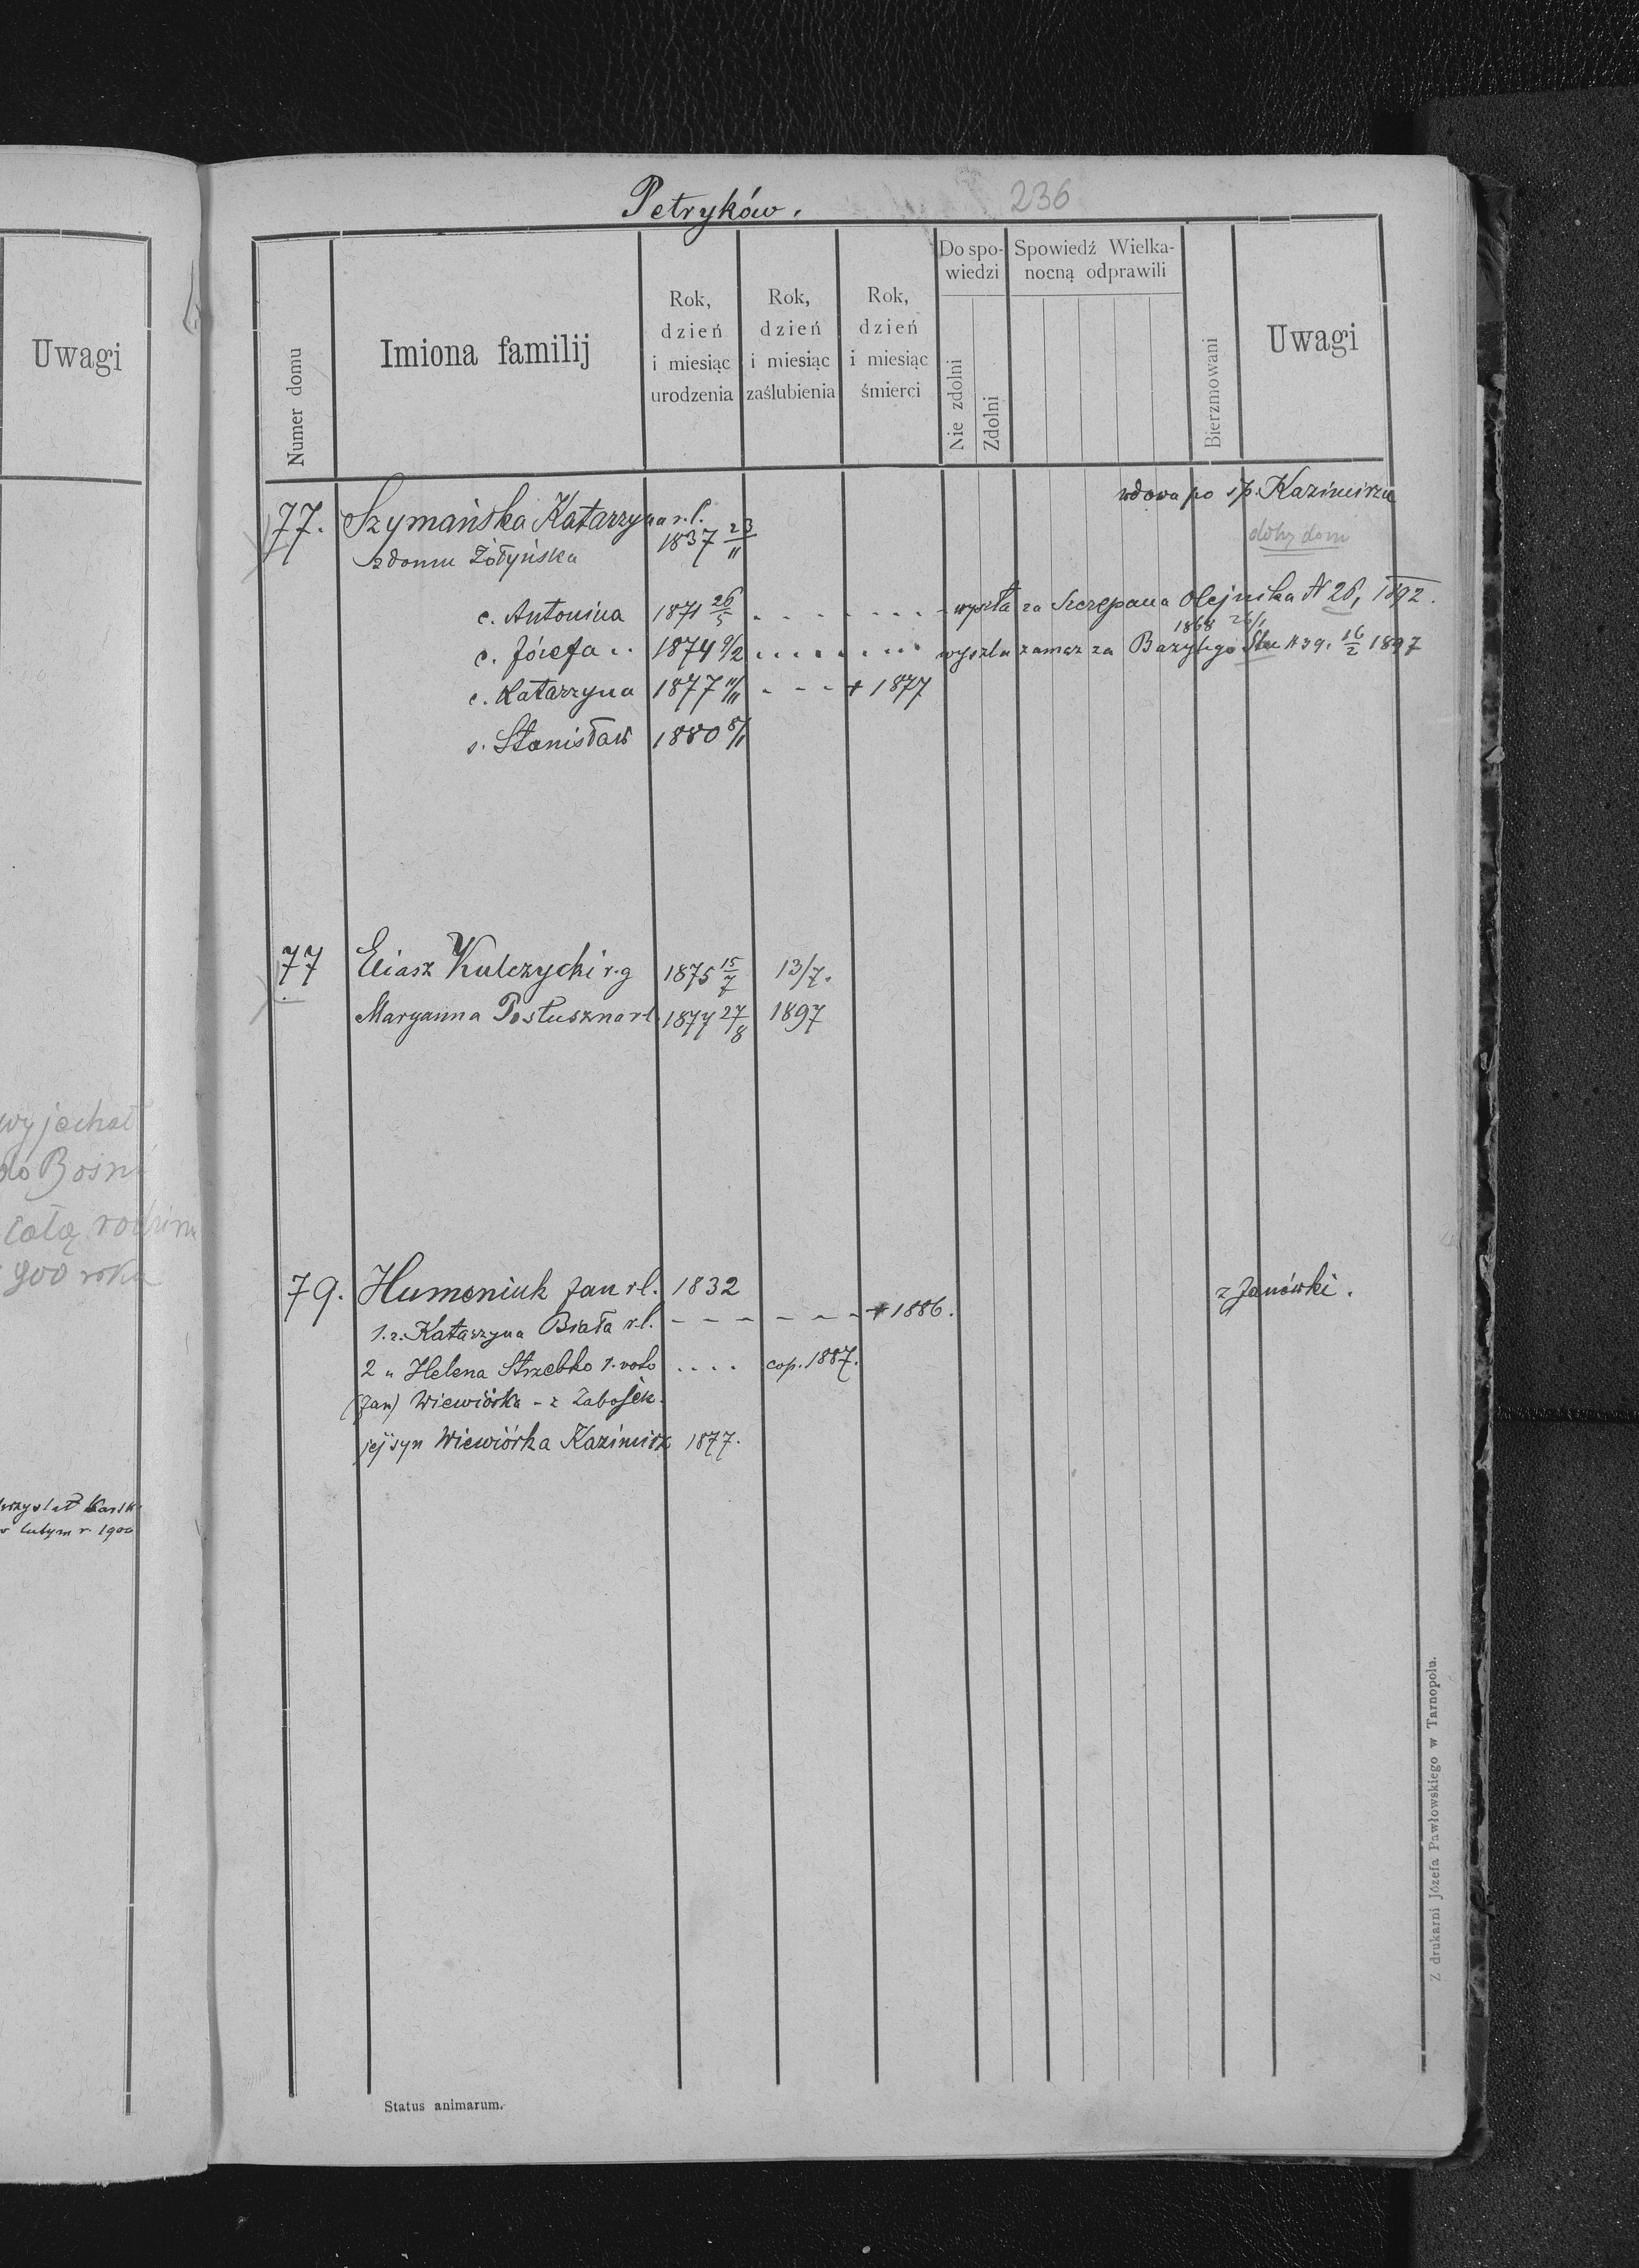 Petryków.
236
Uwagi
Numer domu
Imiona familij
Rok, dzień i miesiąc urodzenia
Rok, dzień i miesiąc zaślubienia
Rok, dzień i miesiąc śmierci
Do spowiedzi
Nie zdolni
Zdolni
Spowiedź Wielkanocną odprawili
Bierzmowani
Uwagi
77. Szymańska Katarzyna r.l. 1837 23/11 wdowa po śp. Kazimirzu
z domu Żółyńska
c. Antonina 1871 26/5 . . . . . . . . wyszła za Szczepana Olejnika N 26, 1892.
1868 26/1
c. Józefa .. 1874 9/2 . . . . . . . . wyszła zamąż za Bazylego N 39. 16/2 1897
c. Katarzyna 1877 11/11 - - - + 1877
s. Stanisław 1880 8/11
77 Eliasz Kulczycki r.g 1875 15/7 13/7.
Maryanna Posłuszna r.l. 1877 27/8 1897
wyjechał
do Bośni
całą rodziną
900 roku
79. Humeniuk Jan r.l. 1832 z Janówki.
1. ż. Katarzyna Biała r.l. - - - - - - + 1886.
2 " Helena Strzebko 1. voto . . . . cop. 1887.
(Jan) Wiewiórka - z Zabojek.
jej syn Wiewiórka Kazimirz 1877.
w lutym r. 1900
Z drukarni Józefa Pawłowskiego w Tarnopolu.
Status animarum.